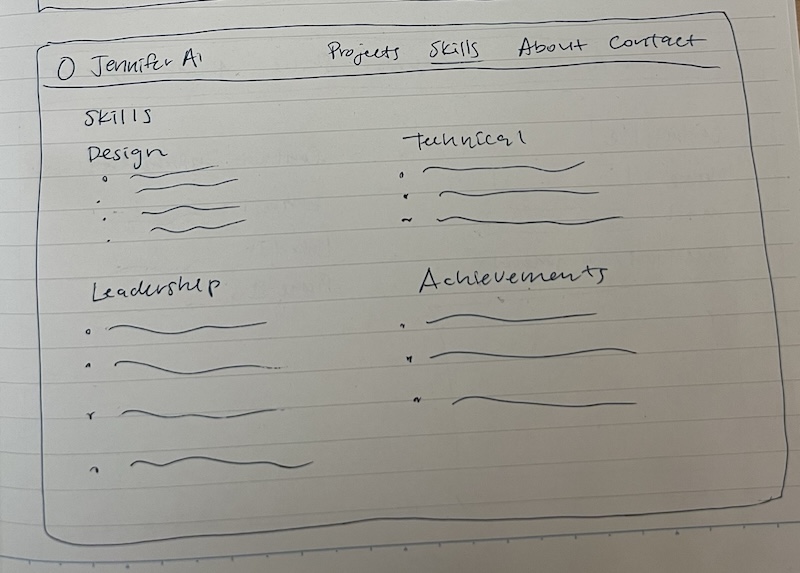 Jennifer Ai Projects Skills About Contact
Skills
Design
Technical
Leadership
Achievements